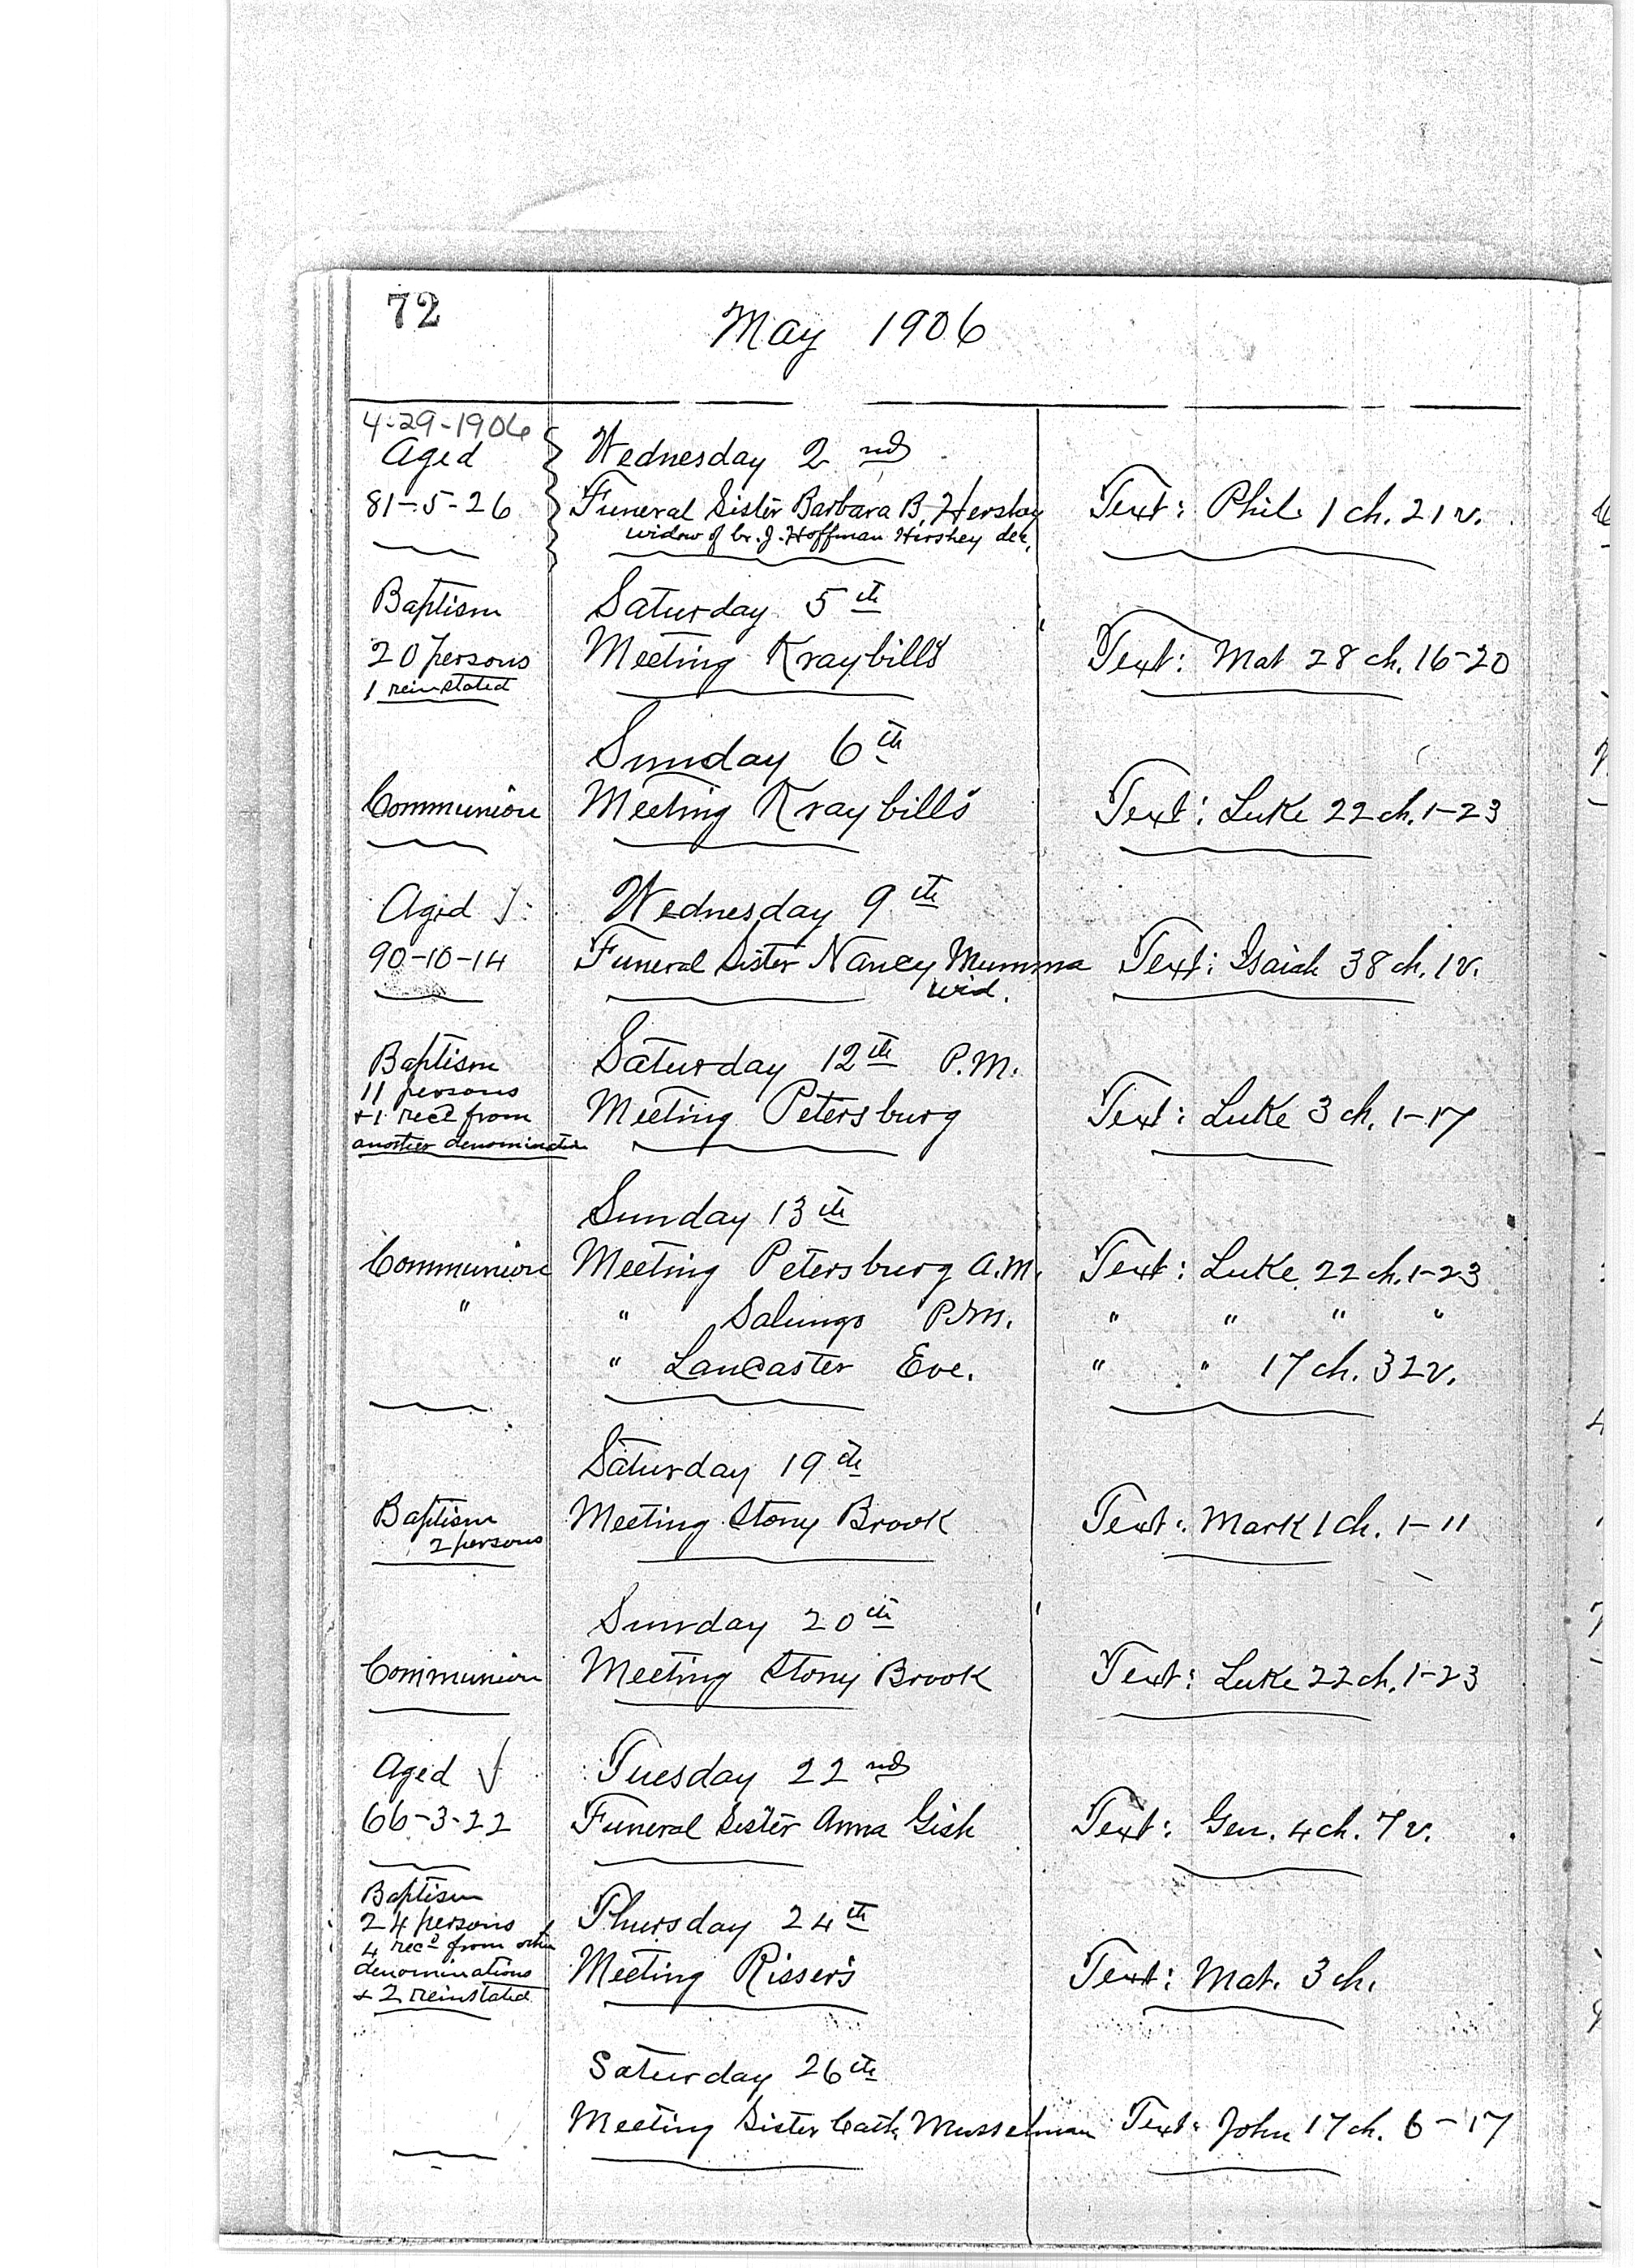 72
May 1906
4-29-1906
Aged Wednesday 2nd
81-5-26 Funeral Sister Barbara B. Hershey Text: Phil. 1 ch. 21 v.
widow of br. J. Hoffman Hershey dec.
Baptism Saturday 5th
20 persons Meeting Kraybills Text: Mat 28 ch. 16-20
1 reinstated
Sunday 6th
Communion Meeting Kraybill's Text: Luke 22 ch. 1-23
Aged Wednesday 9th
90-10-14 Funeral Sister Nancy Mumma Text: Isaiah 38 ch. 1 v.
wid.
Baptism Saturday 12th P.M.
11 persons
+1 recd from Meeting Petersburg Text: Luke 3 ch. 1-17
another denomination
Sunday 13th
Communion Meeting Petersburg A.M. Text: Luke 22 ch. 1-23
" " Salunga P.M. " " " "
" Lancaster Eve. " " 17 ch. 32 v.
Saturday 19th
Baptism Meeting Stony Brook Text: Mark 1 ch. 1-11
2 persons
Sunday 20th
Communion Meeting Stony Brook Text: Luke 22 ch. 1-23
Aged √ Tuesday 22nd
66-3-22 Funeral Sister Anna Gish Text: Gen. 4 ch. 7 v.
Baptism
24 persons Thursday 24th
4 recd from other
denominations Meeting Risser's Text: Mat. 3 ch.
+ 2 reinstated
Saturday 26th
Meeting Sister Cath. Musselman Text: John 17 ch. 6-17